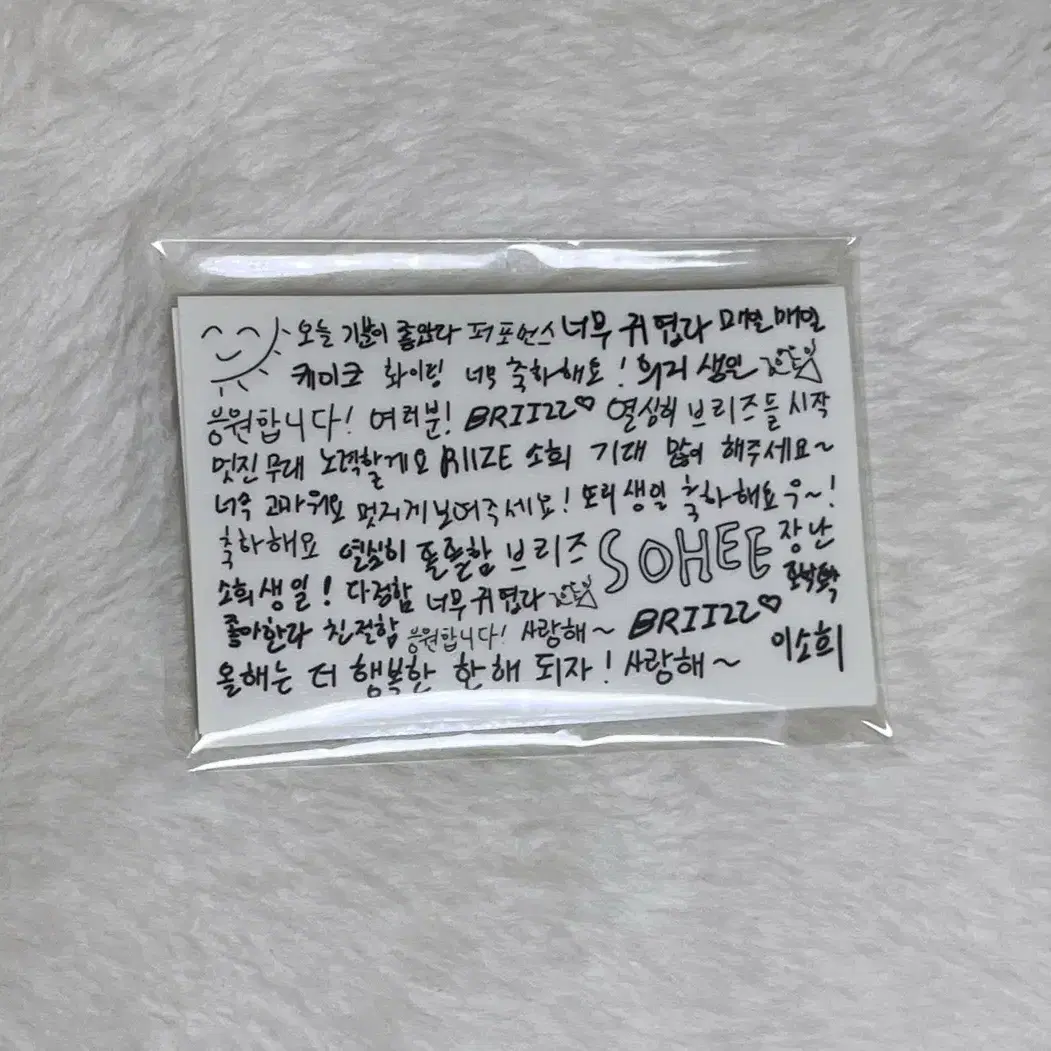 오늘 기분이 좋았다 퍼포먼스 너무 귀엽다 매일매일
케이크 화이팅 너무 축하해요! 희지 생일
응원합니다! 여러분! BRIIZZ♡ 열심히 브리즈들 시작
멋진 무대 노력할게요 RIIZE 소희 기대 많이 해주세요~
너무 고마워요 멋지게 보여주세요! 또리 생일 축하해요 우~!
축하해요 열심히 돌돌함 브리즈 SOHEE 장난
소희 생일! 다정함 너무 귀엽다
좋아한다 친절함 응원합니다! 사랑해~ BRIIZZ♡ 이소희
올해는 더 행복한 한 해 되자! 사랑해~